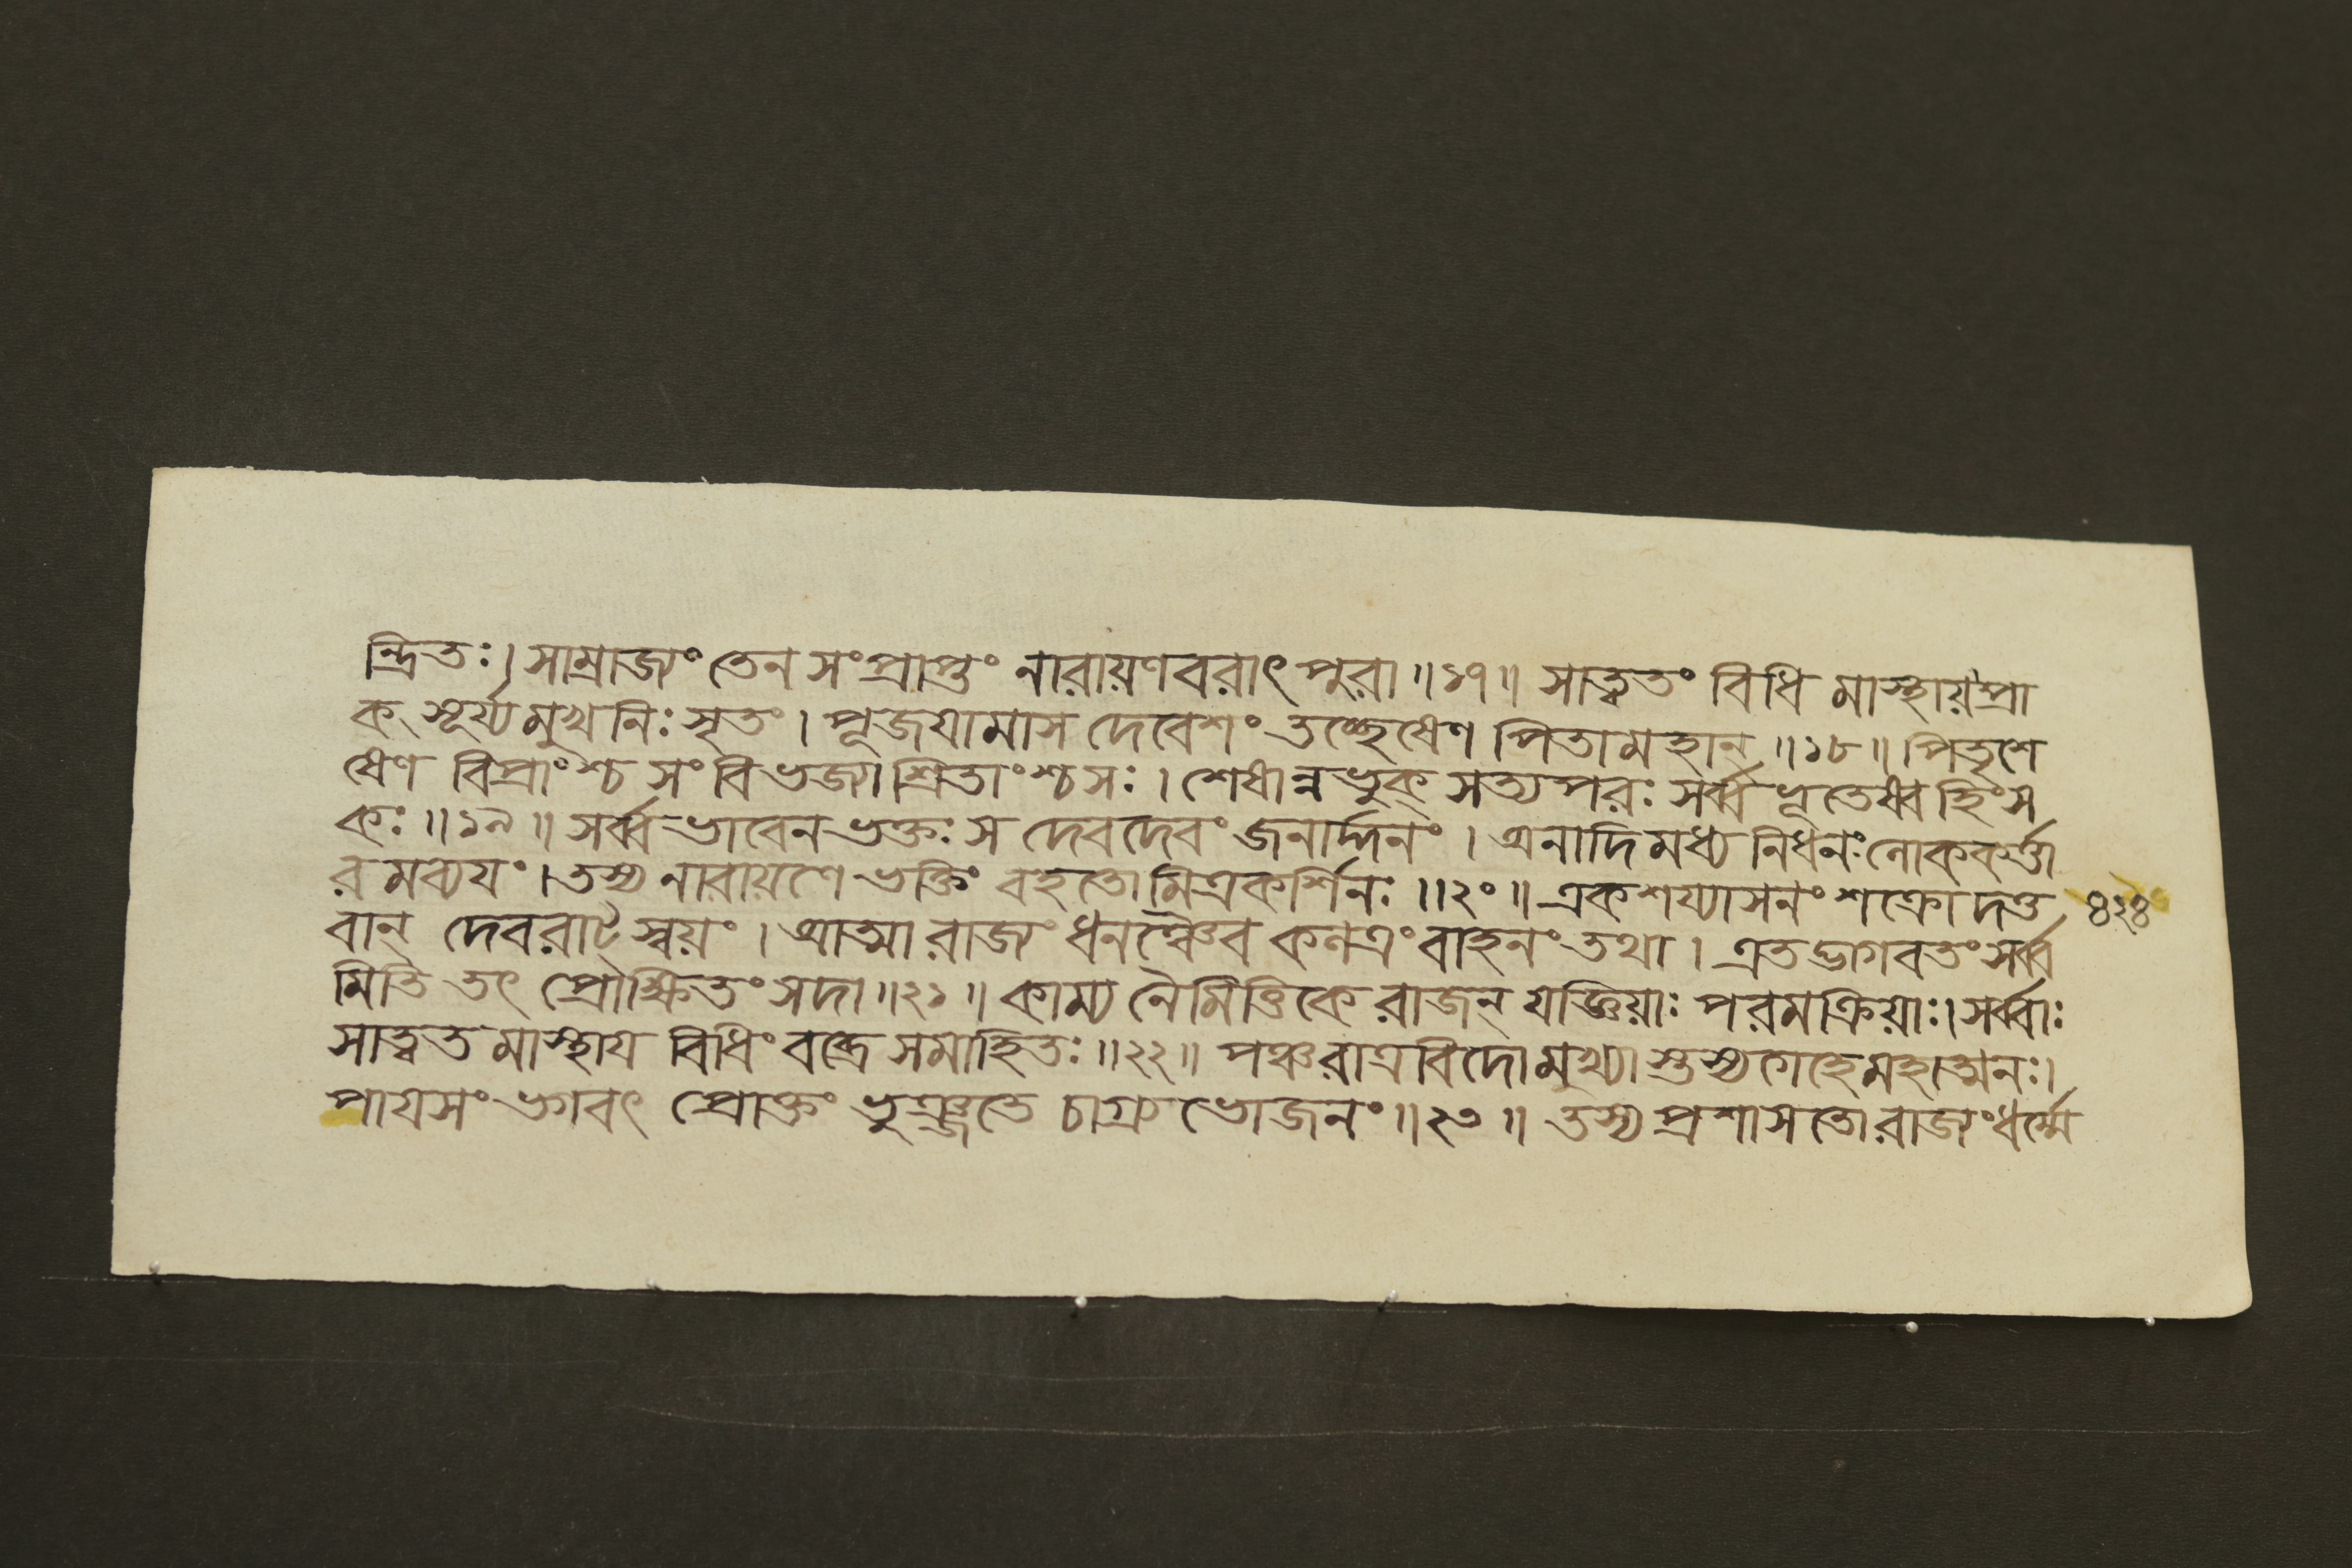 ন্দ্রিতঃ। সাম্রাজ্যং তেন সংপ্রাপ্তং নারায়ণবরাৎ পুরা॥১৭॥ সাত্ত্বতং বিধি মাস্থায়প্রা
ক্ সূর্য্যমুখনিঃসৃতং। পূজযামাস দেবেশং তচ্ছেষেণ পিতামহান্॥১৮॥ পিতৃশে
ষেণ বিপ্রাংশ্চ সংবিভজ্যাশ্রিতাংশ্চসঃ। শেষান্নভুক্ সত্যপরঃ সর্ব্বভূতেষ্বহিংস
কঃ॥১৯॥ সর্ব্বভাবেনভক্তঃ স দেবদেবং জনার্দ্দনং। অনাদিমধ্য নিধনং লোককর্ত্তা
রমব্যযং। তস্য নারায়ণে ভক্তিং বহতোমিত্রকর্শিনঃ॥২০॥ একশয্যাসনং শক্রো দত্ত
৪২৪
বান্ দেবরাট্ স্বয়ং। আত্মা রাজ্যং ধনঞ্চৈব কলত্রং বাহনং তথা। এতদ্ভাগবতং সর্ব্ব
মিতি তৎ প্রোক্ষিতং সদা॥২১॥ কাম্য নৈমিত্তিকে রাজন্ যজ্ঞিয়াঃ পরমক্রিয়াঃ। সর্ব্বাঃ
সাত্ত্বতমাস্থায বিধিং চক্রে সমাহিতঃ॥২২॥ পঞ্চরাত্রবিদো মুখ্যা স্তস্যগেহে মহাত্মনঃ।
পাযসং ভগবৎ প্রোক্তং ভুঞ্জতে চাগ্র ভোজনং॥২৩॥ তস্য প্রশাসতো রাজ্যং ধর্ম্মে